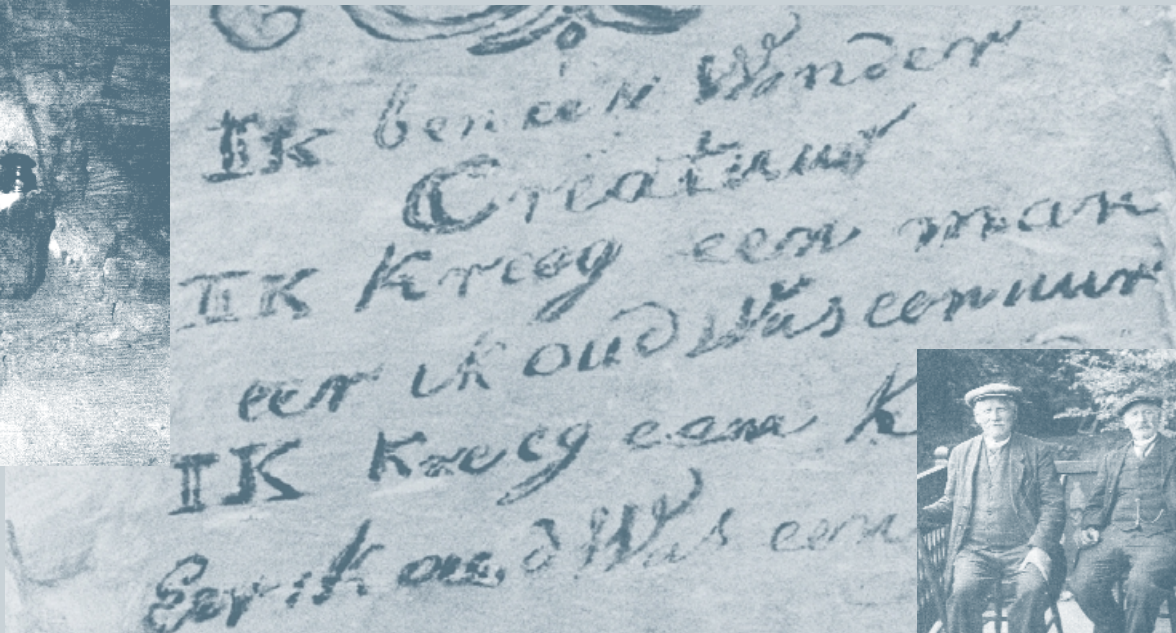 IK ben een Wonder
Creatuur
IK Kreeg een man
eer ik oud Was een uur
IK Kreeg een
Eer ik oud Was een